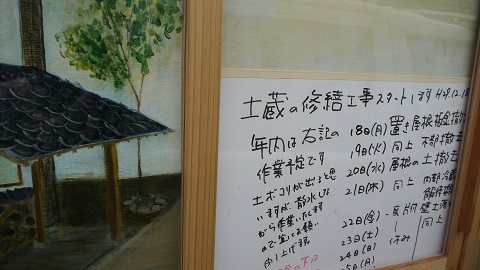 土蔵の修繕工事スタートします H29.12.18
年内は右記の
作業予定です
土ボコリが出ると思
いますが、散水しな
がら作業いたします
ので宜しくお願い
申し上げます。
18日(月) 置き屋根 板金撤
19日(火) 同上 木部撤去
20日(水) 屋根の土撤去
21日(木) 同上 内部
22日(金) 壁土
23日(土) 同上
24日(日) 休み
25日(月)